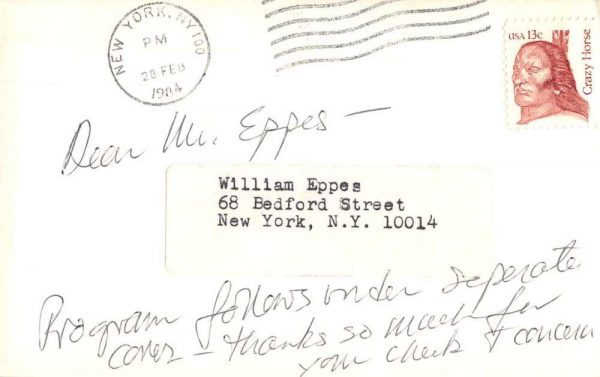 NEW YORK, NY 100
PM
28 FEB
1984
USA 13c
Crazy Horse
Dear Mr. Eppes —
William Eppes
68 Bedford Street
New York, N.Y. 10014
Program follows under seperate
cover — thanks so much for
your check & concern